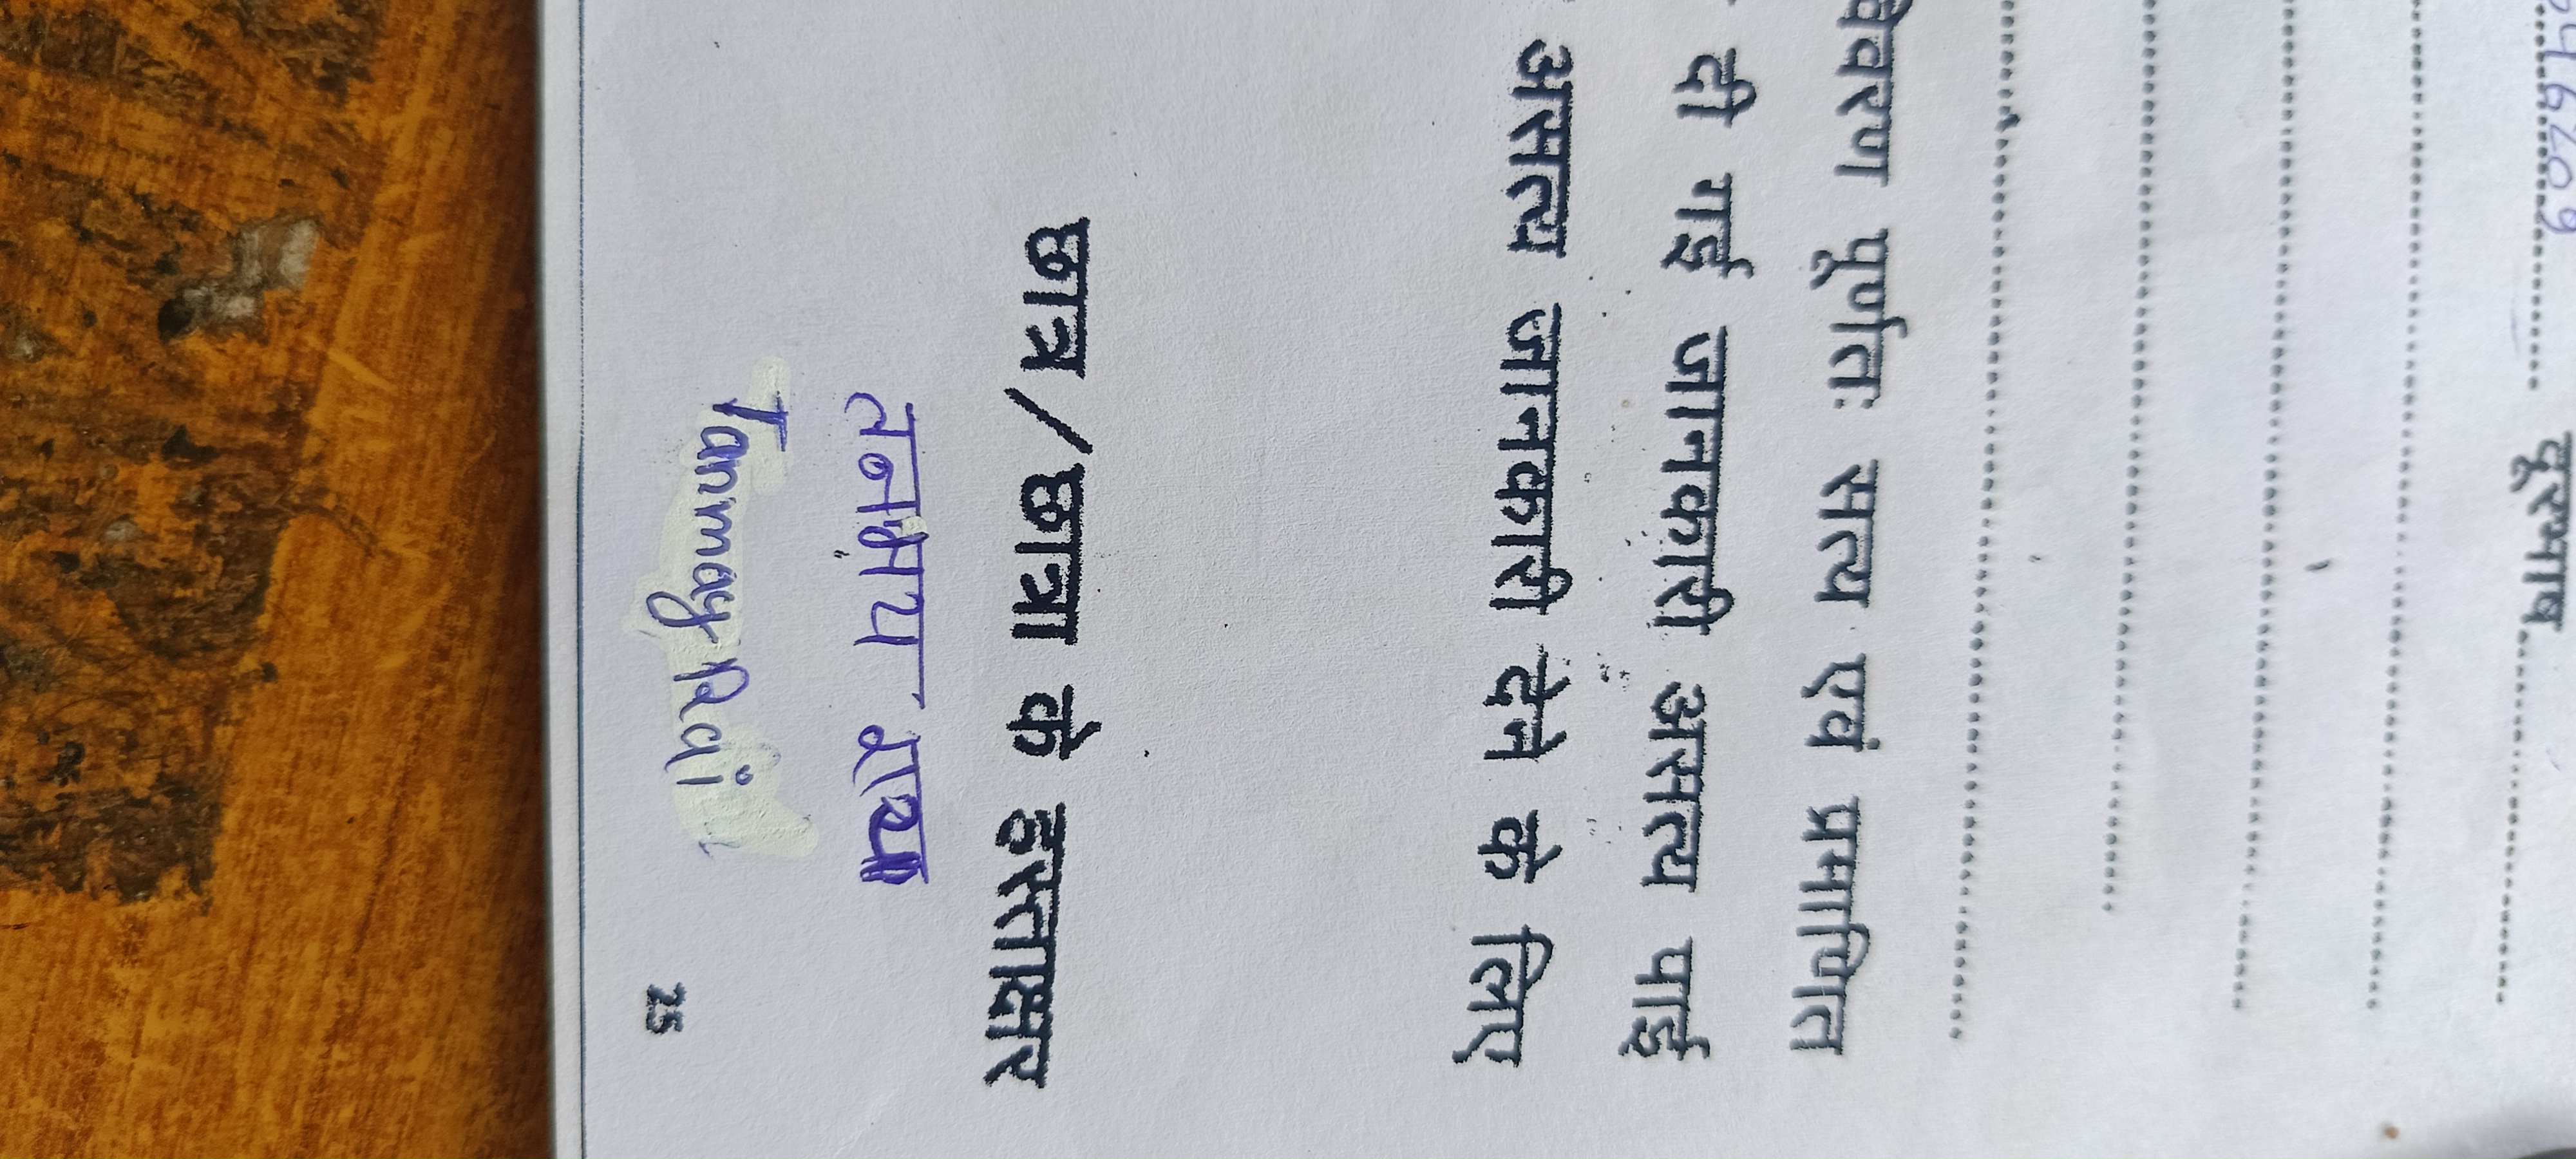 04616209 दूरभाष
विवरण पूर्णतः सत्य एवं प्रमाणित
दी गई जानकारी असत्य पाई
असत्य जानकारी देने के लिए
छात्र/छात्रा के हस्ताक्षर
तनमय
Tanmay Rai
25